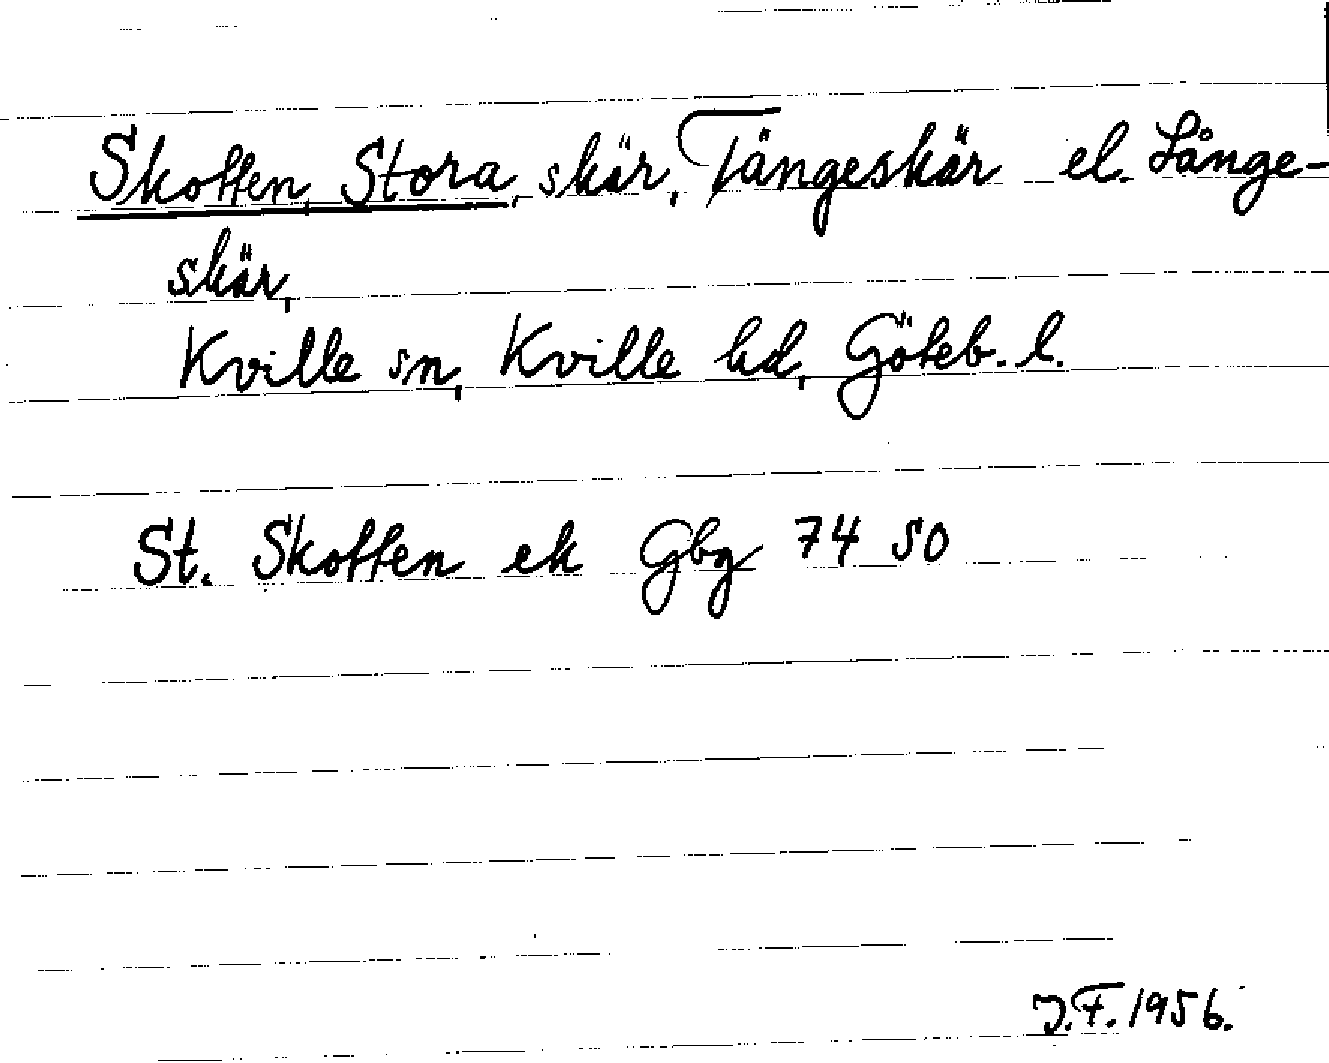 Skotten, Stora, skär, Tängeskär el. Långe-
skär,
Kville sn, Kville hd, Göteb. l.
St. Skotten ek Gbg 74 SO
J.F. 1956.